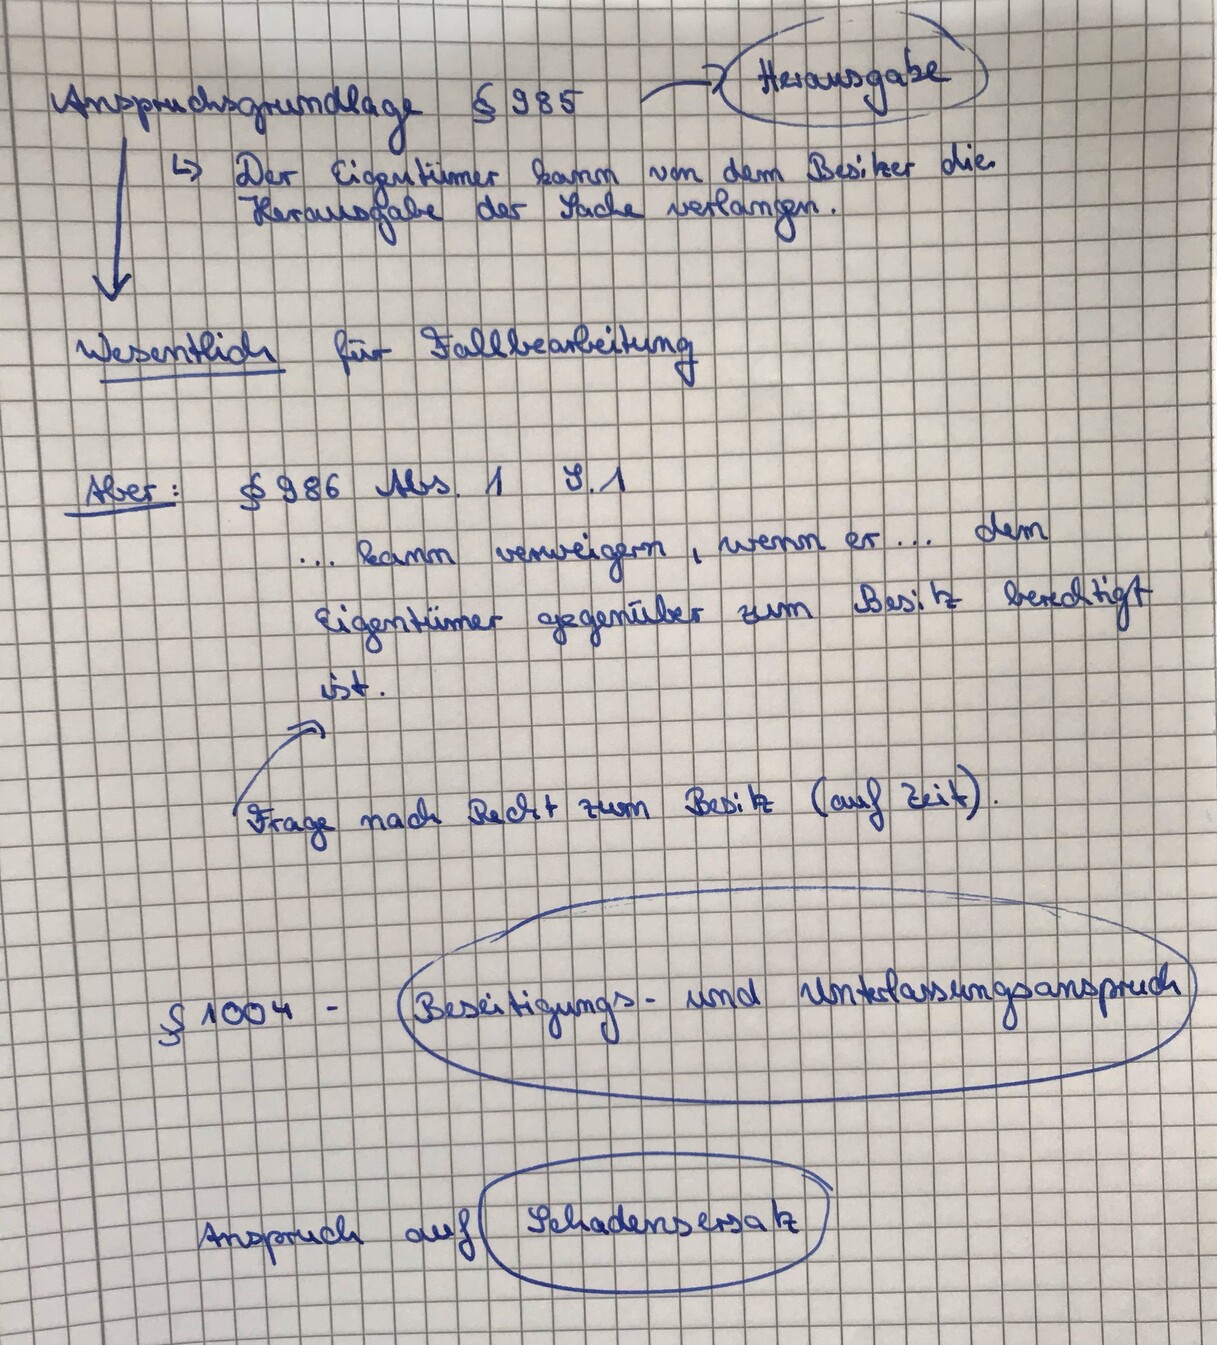 Anspruchsgrundlage § 985 → Herausgabe
↳ Der Eigentümer kann von dem Besitzer die
Herausgabe der Sache verlangen.
Wesentlich für Fallbearbeitung
Aber: § 986 Abs. 1 S. 1
... kann verweigern, wenn er ... dem
Eigentümer gegenüber zum Besitz berechtigt
ist.
Frage nach Recht zum Besitz (auf Zeit).
§ 1004 - Beseitigungs- und Unterlassungsanspruch
Anspruch auf Schadensersatz